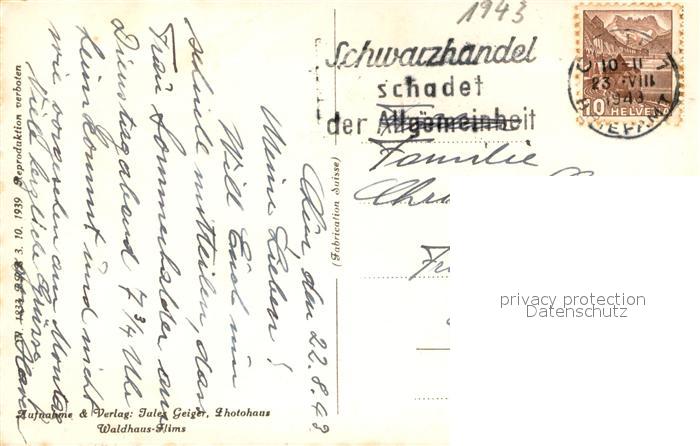 1943
Schwarzhandel
schadet
der Allgemeinheit
10-11
23.VIII
1943
10 HELVETIA
Familie
Chr
Fr
privacy protection
Datenschutz
(Fabrication Suisse)
den 22.8.43
Meine Lieben!
Will Euch nur
schnele mitteilen, dass
Frau Sommerhalder am
Dienstagabend 7¾ Uhr
heimkommt und nicht
wie vorgesehen am Montag
Viele herzliche Grüsse
3. 10. 1939 Reproduktion verboten
Aufnahme & Verlag: Jules Geiger, Photohaus
Waldhaus-Flims